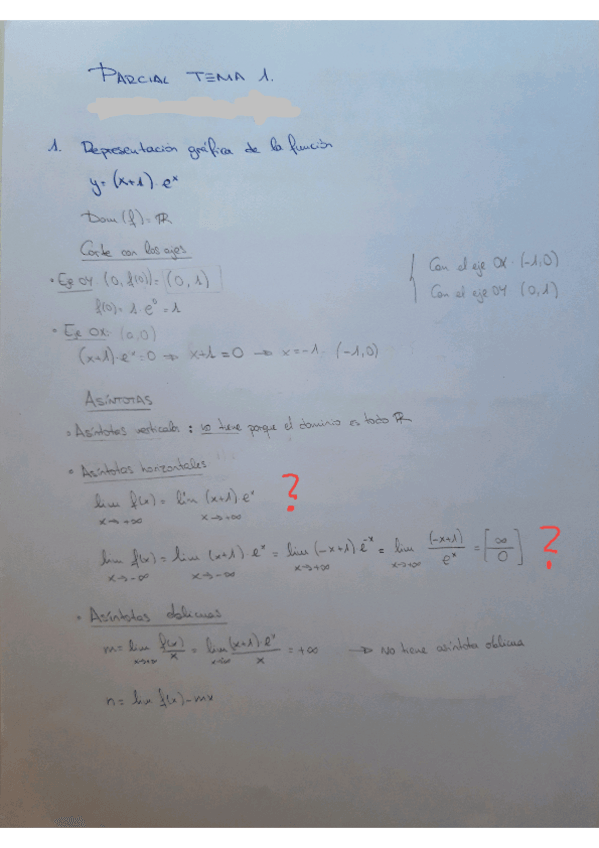 PARCIAL TEMA 1.
1. Representación gráfica de la función
y=(x+1)·e^x
Dom(f)=ℝ
Corte con los ejes
• Eje OY (0, f(0))=(0,1)
f(0)=1·e^0=1
• Eje OX (a,0)
(x+1)·e^x=0 ⇒ x+1=0 → x=-1. (-1,0)
Con el eje OX (-1,0)
Con el eje OY (0,1)
ASÍNTOTAS
• Asíntotas verticales: no tiene porque el dominio es todo ℝ
• Asíntotas horizontales
lim x→+∞ f(x) = lim x→+∞ (x+1) e^x ?
lim x→-∞ f(x) = lim x→-∞ (x+1) e^x = lim x→+∞ (-x+1) e^-x = lim x→+∞ (-x+1)/e^x = [∞/0] ?
• Asíntotas oblicuas
m= lim x→+∞ f(x)/x = lim x→∞ (x+1) e^x/x = +∞ → No tiene asíntota oblicua
n= lim f(x)-mx